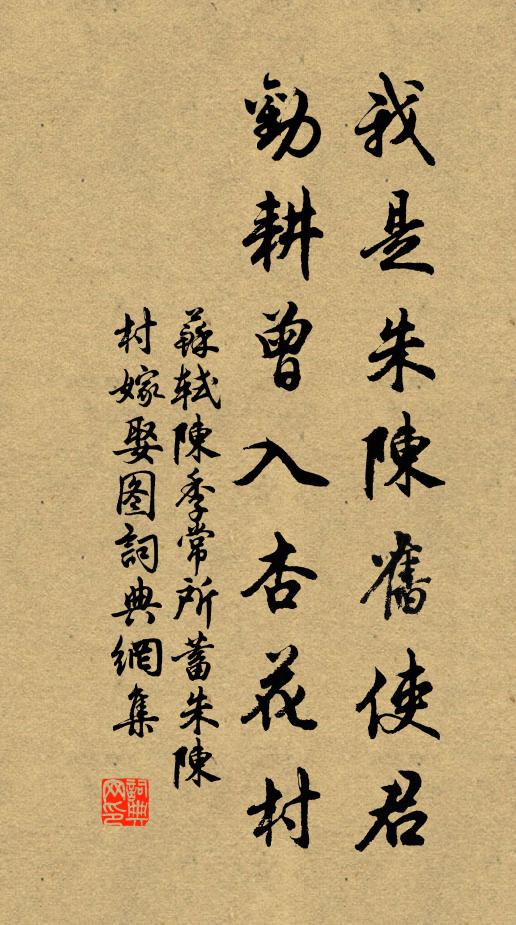 我是朱陳舊使君
勸耕曾入杏花村
蘇軾陳季常所蓄朱陳
村嫁娶图詞典網集
詞典网印